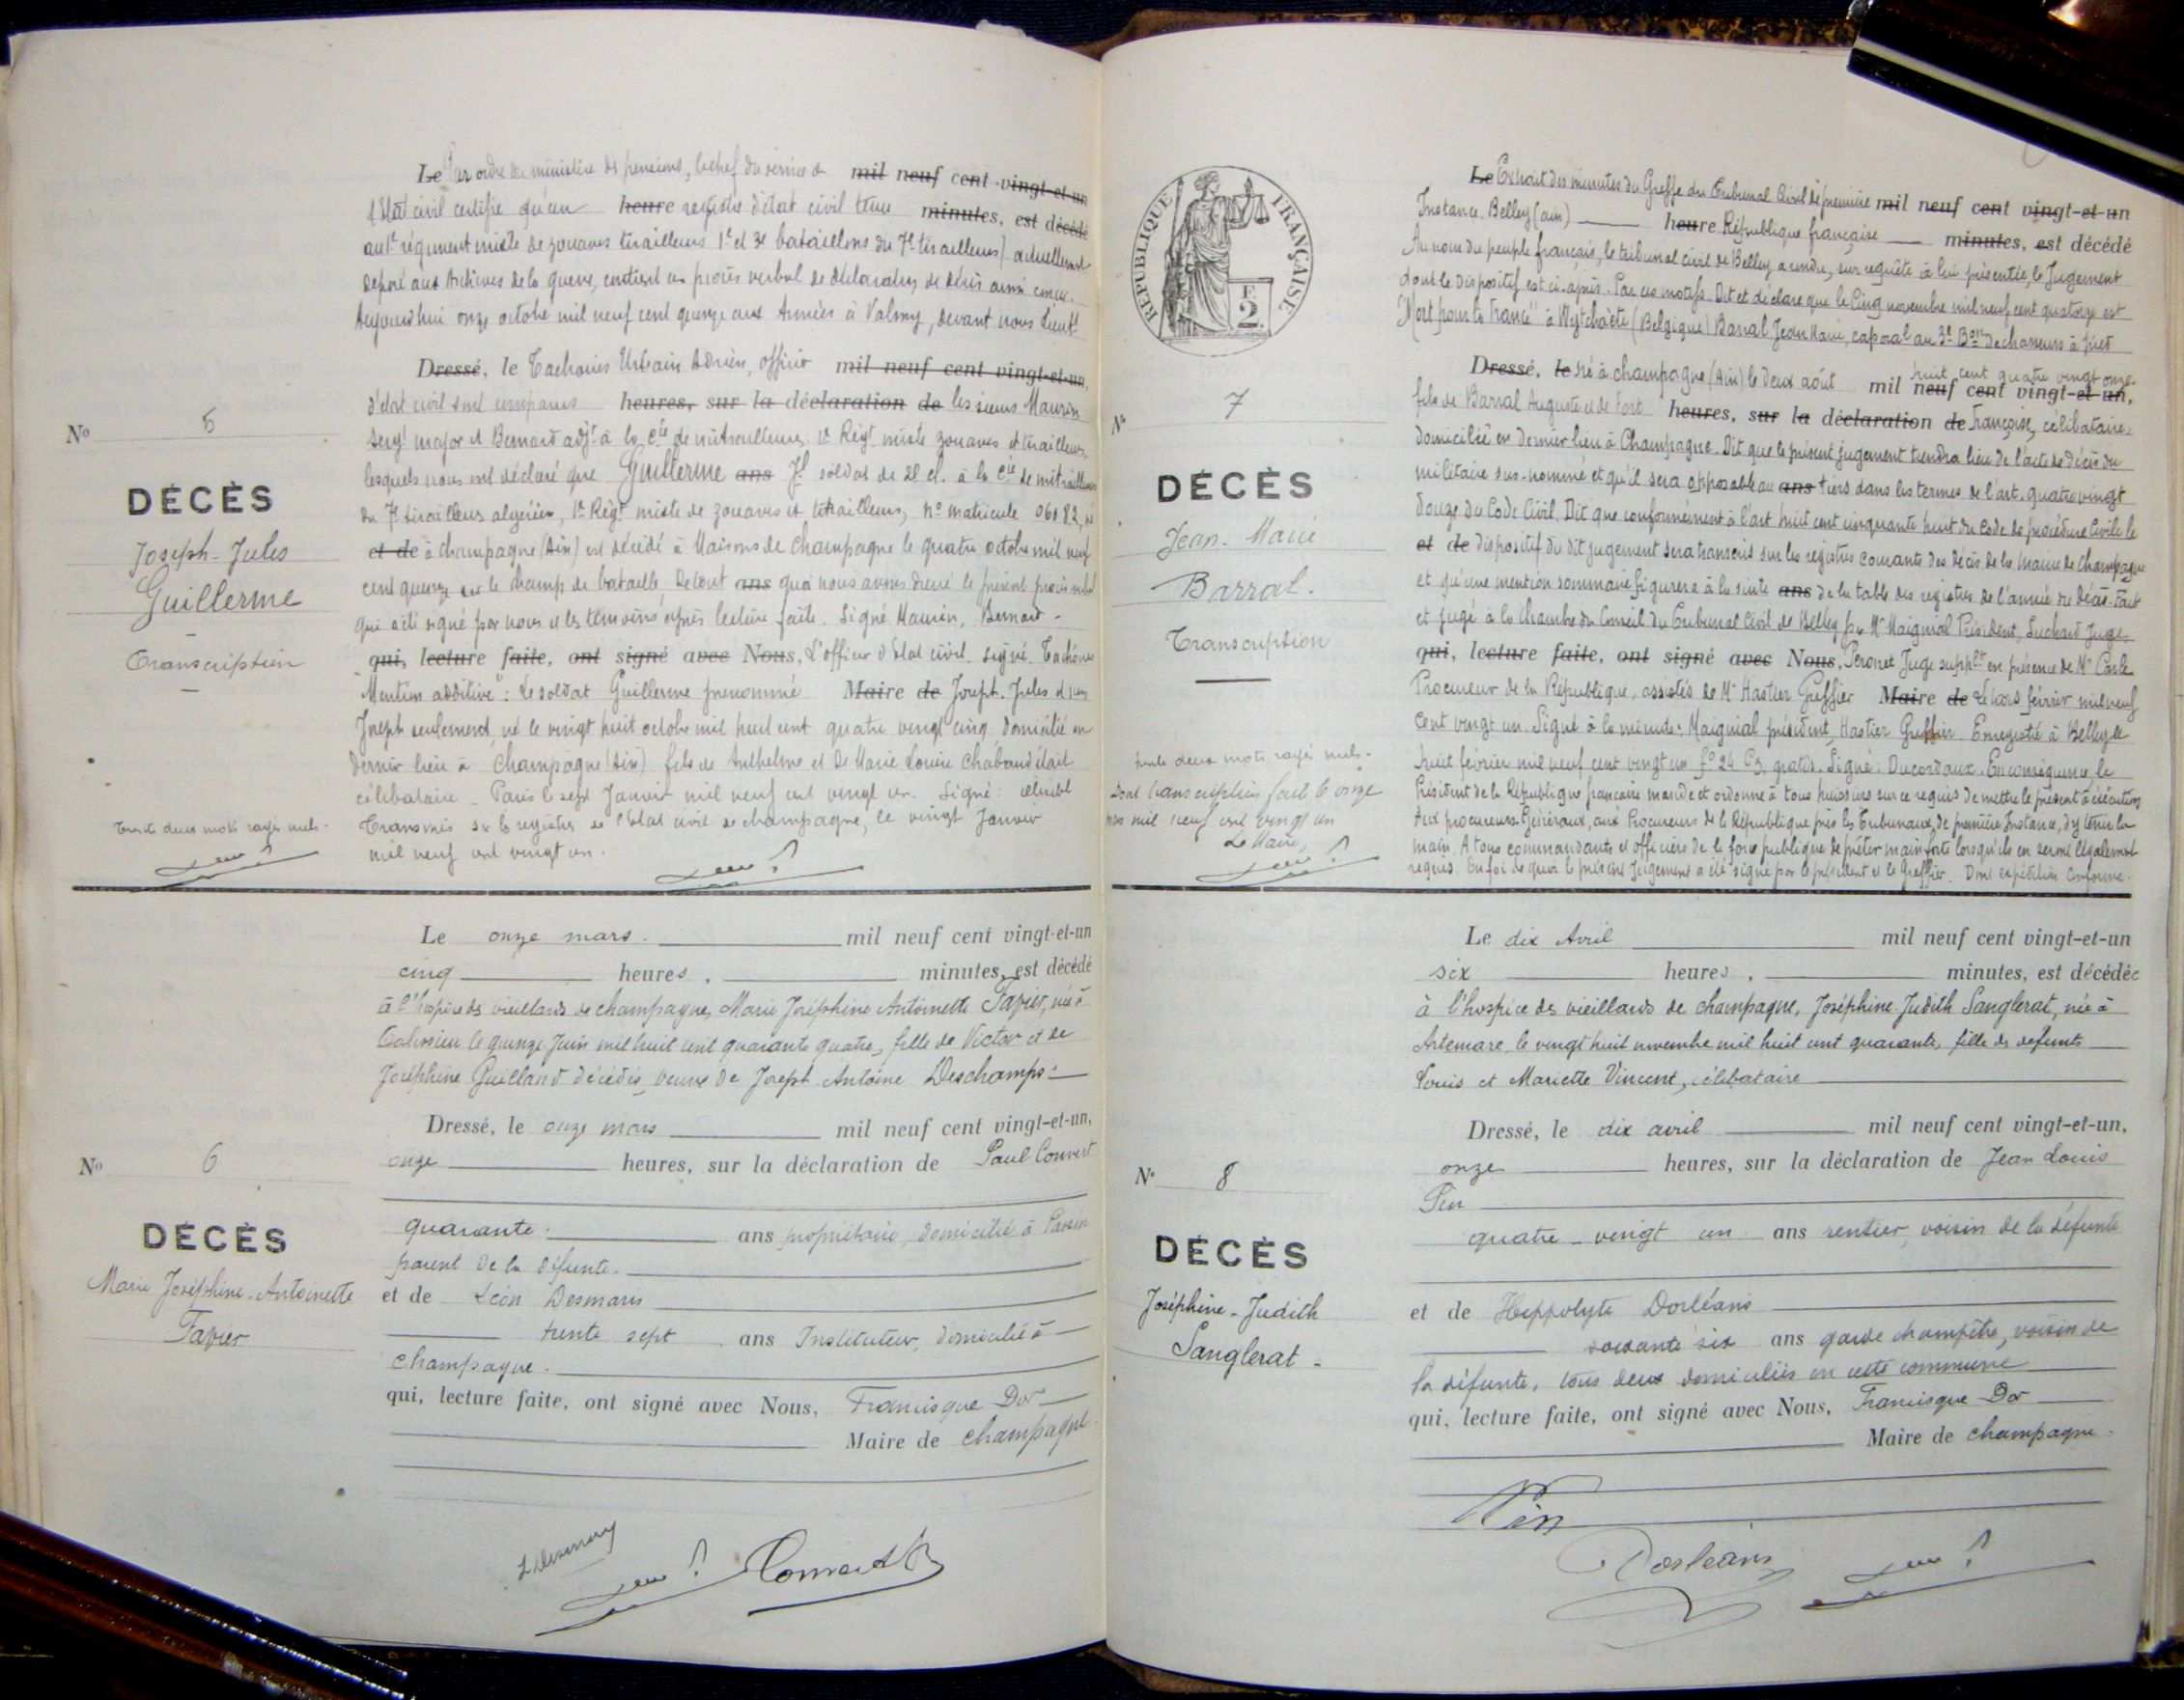 Le Par ordre du ministère des pensions, le chef du service de mil neuf cent vingt-et-un
l'état civil certifie qu'un heure registre d'état civil tenu minutes, est décédé
au 1er régiment mixte de zouaves tirailleurs 1er et 3e bataillons du 7e tirailleurs) actuellement
déposé aux Archives de la guerre, contient un procès verbal de déclaration de décès ainsi conçu.
Aujourd'hui onze octobre mil neuf cent quinze aux Armées à Valmy, devant nous Lieutt
Dressé, le Tachoires Urbain Adrien, officier mil neuf cent vingt-et-un,
d'état civil sont comparus heures, sur la déclaration de les sieurs Maurin
sergt major et Bernard adjt à la Cie de mitrailleuses 1er Régt mixte zouaves et tirailleurs,
lesquels nous ont déclaré que Guillerme ans Jh soldat de 2e cl. à la Cie de mitrailleuses
du 7e tirailleurs algérien, 1er Régt mixte de zouaves et tirailleurs, no matricule 06182, né
et de à Champagne (Ain) est décédé à Maisons de Champagne le quatre octobre mil neuf
cent quinze sur le champ de bataille, De tout ans quoi nous avons dressé le présent procès verbal
qui a été signé par nous et les témoins après lecture faite. Signé Maurin, Bernard -
qui, lecture faite, ont signé avec Nous, L'officier d'Etat civil signé Tachoires
"Mention additive": Le soldat Guillerme prénommé Maire de Joseph. Jules et non
Joseph seulement, né le vingt huit octobre mil huit cent quatre vingt cinq domicilié en
dernier lieu à Champagne (Ain) fils de Anthelme et de Marie Louise Chabaud était
célibataire - Paris le sept Janvier mil neuf cent vingt un. Signé:
Transcrits sur le registre de l'Etat civil de Champagne, le vingt Janvier
mil neuf cent vingt un.
No 5
DÉCÈS
Joseph-Jules
Guillerme
Transcription
Trente deux mots rayés nuls.
Le onze mars. mil neuf cent vingt-et-un
cinq heures, minutes, est décédé
à l'hospice des vieillards de Champagne, Marie Joséphine Antoinette Tapier, née à
le quinze Juin mil huit cent quarante quatre, fille de Victor et de
Joséphine Guilland décédés, veuve de Joseph Antoine Deschamps
Dressé, le onze mars mil neuf cent vingt-et-un,
onze heures, sur la déclaration de Paul Convert
quarante ans propriétaire, domicilié à Passin
parent de la défunte.
et de Léon Desmaris
trente sept ans Instituteur, domicilié à
Champagne.
qui, lecture faite, ont signé avec Nous, Francisque Dor
Maire de Champagne
No 6
DÉCÈS
Marie Joséphine-Antoinette
Tapier
Convert
RÉPUBLIQUE FRANÇAISE
F
2.
Le Extrait des minutes du Greffe du Tribunal Civil de première mil neuf cent vingt-et-un
Instance Belley (Ain) heure République française minutes, est décédé
Au nom du peuple français, le tribunal civil de Belley a rendu, sur requête à lui présentée, le Jugement
dont le dispositif est ci-après. Par ces motifs Dit et déclare que le Cinq novembre mil neuf cent quatorze est
"Mort pour la France" à Wytchaète (Belgique) Barral Jean Marie, caporal au 3e Bon de chasseurs à pied
Dressé, le né à Champagne (Ain) le deux août mil neuf cent vingt-et-un, huit cent quatre vingt onze.
fils de Barral Auguste et de Fort heures, sur la déclaration de Françoise, célibataire,
domicilié en dernier lieu à Champagne. Dit que le présent jugement tiendra lieu de l'acte de décès du
militaire sus-nommé et qu'il sera opposable au ans tiers dans les termes de l'art. quatre vingt
douze du Code Civil. Dit que conformément à l'art huit cent cinquante huit du Code de procédure Civile le
et de dispositif du dit jugement sera transcris sur les registres courants des décès de la Mairie de Champagne
et qu'une mention sommaire figurera à la suite ans de la table des registres de l'année du décès. Fait
et jugé à la Chambre du Conseil du Tribunal Civil de Belley par Mr Maignial Président, Suchard Juge
qui, lecture faite, ont signé avec Nous, Peronet Juge supplt en présence de Mr Carle
Procureur de la République, assistés de Mr Hastier Greffier Maire de le trois février mil neuf
cent vingt un. Signé à la minute: Maignial président, Hastier Greffier. Enregistré à Belley le
huit février mil neuf cent vingt un fo 24 C3 gratis. Signé: Ducordaux. En conséquence, le
Président de la République française mande et ordonne à tous huissiers sur ce requis de mettre le présent à exécution
Aux procureurs Généraux, aux Procureurs de la République près les Tribunaux de première Instance, d'y tenir la
main A tous commandants et officiers de la force publique de prêter main forte lorsqu'ils en seront légalement
requis. En foi de quoi le présent Jugement a été signé par le président et le Greffier. Dont expédition conforme.
No 7
DÉCÈS
Jean-Marie
Barral.
Transcription
trente deux mots rayés nuls.
Dont transcription fait le onze
mars mil neuf cent vingt un
Le Maire,
Le dix Avril mil neuf cent vingt-et-un
six heures, minutes, est décédée
à l'hospice des vieillards de Champagne, Joséphine-Judith Sanglerat, née à
Artemare le vingt huit novembre mil huit cent quarante, fille des défunts
Louis et Mariette Vincent, célibataire
Dressé, le dix avril mil neuf cent vingt-et-un,
onze heures, sur la déclaration de Jean Louis
Pin
quatre-vingt un ans rentier, voisin de la défunte
et de Hippolyte Dorléans
soixante six ans garde champêtre, voisin de
la défunte, tous deux domiciliés en cette commune
qui, lecture faite, ont signé avec Nous, Francisque Dor
Maire de Champagne.
No 8
DÉCÈS
Joséphine-Judith
Sanglerat-
Pin
Dorléans